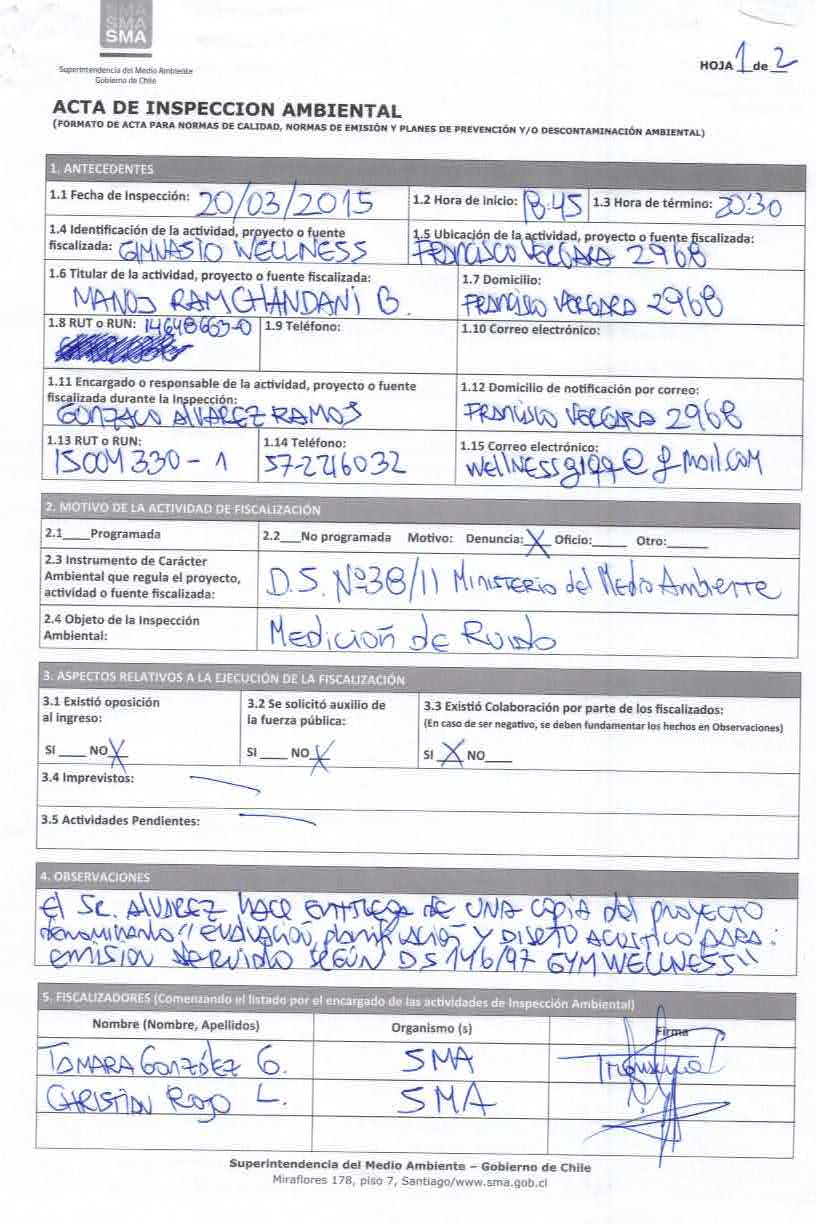 SMA
SMA
SMA
Superintendencia del Medio Ambiente
Gobierno de Chile
HOJA 1 de 2
ACTA DE INSPECCION AMBIENTAL
(FORMATO DE ACTA PARA NORMAS DE CALIDAD, NORMAS DE EMISIÓN Y PLANES DE PREVENCIÓN Y/O DESCONTAMINACIÓN AMBIENTAL)
1. ANTECEDENTES
1.1 Fecha de Inspección: 20/03/2015
1.2 Hora de inicio: 18:45
1.3 Hora de término: 20:30
1.4 Identificación de la actividad, proyecto o fuente
fiscalizada: GIMNASIO WELLNESS
1.5 Ubicación de la actividad, proyecto o fuente fiscalizada:
FRANCISCO VERGARA 2968
1.6 Titular de la actividad, proyecto o fuente fiscalizada:
MANOJ RAMCHANDANI B.
1.7 Domicilio:
FRANCISCO VERGARA 2968
1.8 RUT o RUN: 14648663-0
1.9 Teléfono:
1.10 Correo electrónico:
1.11 Encargado o responsable de la actividad, proyecto o fuente
fiscalizada durante la Inspección:
GONZALO ALVAREZ RAMOS
1.12 Domicilio de notificación por correo:
FRANCISCO VERGARA 2968
1.13 RUT o RUN:
15004330-1
1.14 Teléfono:
57-2216032
1.15 Correo electrónico:
@gmail.com
2. MOTIVO DE LA ACTIVIDAD DE FISCALIZACIÓN
2.1____Programada
2.2___No programada Motivo: Denuncia: X Oficio:_____ Otro:______
2.3 Instrumento de Carácter
Ambiental que regula el proyecto,
actividad o fuente fiscalizada:
D.S. Nº38/11 Ministerio del Medio Ambiente
2.4 Objeto de la Inspección
Ambiental:
Medición de Ruido
3. ASPECTOS RELATIVOS A LA EJECUCIÓN DE LA FISCALIZACIÓN
3.1 Existió oposición
al ingreso:
SI ____ NO X
3.2 Se solicitó auxilio de
la fuerza pública:
SI ____ NO X
3.3 Existió Colaboración por parte de los fiscalizados:
(En caso de ser negativo, se deben fundamentar los hechos en Observaciones)
SI X NO____
3.4 Imprevistos:
3.5 Actividades Pendientes:
4. OBSERVACIONES
El Sr. ALVAREZ HACE ENTREGA DE UNA COPIA del PROYECTO
denominado "EVALUACIÓN, planificación Y DISEÑO ACUSTICO PARA:
EMISION DE RUIDO SEGÚN DS 146/97 GYM WELLNESS"
5. FISCALIZADORES (Comenzando el listado por el encargado de las actividades de Inspección Ambiental)
Nombre (Nombre, Apellidos)
Organismo (s)
Firma
TAMARA González G.
SMA
CHRISTIAN Rojo L.
SMA
Superintendencia del Medio Ambiente – Gobierno de Chile
Miraflores 178, piso 7, Santiago/www.sma.gob.cl